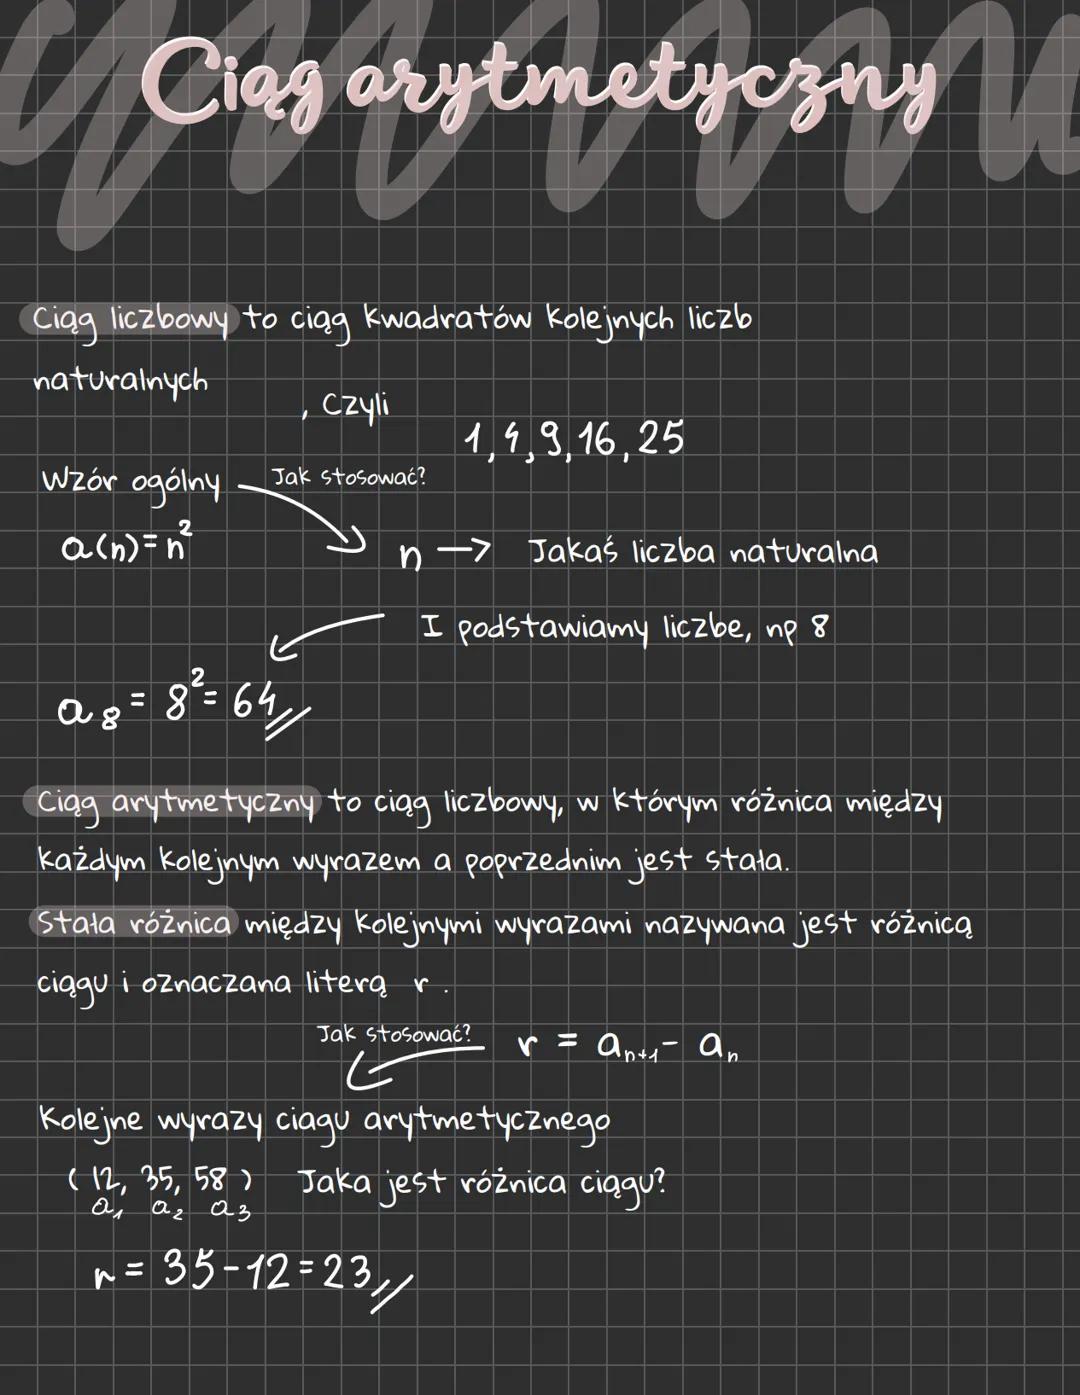 Ciąg arytmetyczny
Ciąg liczbowy to ciąg kwadratów kolejnych liczb
naturalnych
, Czyli
1, 4, 9, 16, 25
Wzór ogólny
Jak stosować?
a(n)=n²
n → Jakaś liczba naturalna
I podstawiamy liczbe, np 8
a₈ = 8² = 64
Ciąg arytmetyczny to ciąg liczbowy, w którym różnica między
każdym kolejnym wyrazem a poprzednim jest stała.
Stała różnica między kolejnymi wyrazami nazywana jest różnicą
ciągu i oznaczana literą r .
Jak stosować?
r = aₙ₊₁ - aₙ
Kolejne wyrazy ciagu arytmetycznego
( 12, 35, 58 ) Jaka jest różnica ciągu?
a₁ a₂ a₃
r = 35-12=23